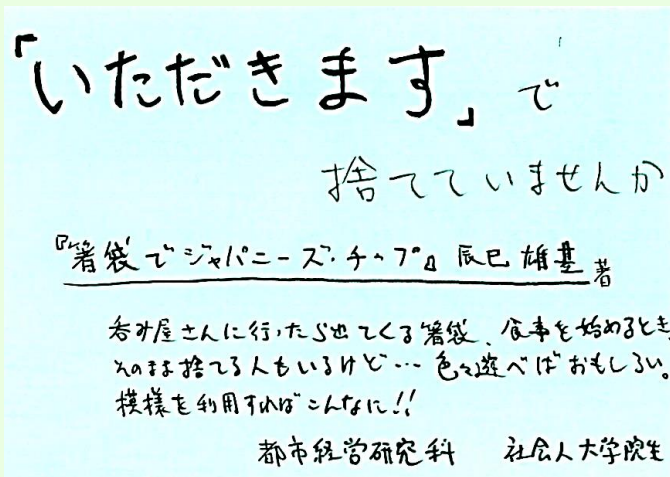 「いただきます」で
捨てていませんか
『箸袋でジャパニーズ・チップ』 辰巳 雄基 著
呑み屋さんに行ったら出てくる箸袋、食事を始めるとき
そのまま捨てる人もいるけど… 色々遊べばおもしろい。
模様を利用すればこんなに!!
都市経営研究科 社会人大学院生